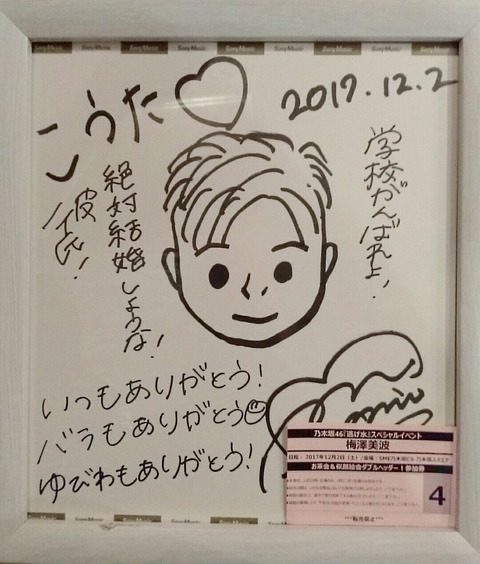 Sony Music Sony Music Sony Music Sony Music
こうた♡
2017.12.2
学校がんばれよ!
絶対結婚しような!
彼氏!
いつもありがとう!
バラもありがとう
ゆびわもありがとう!
乃木坂46『逃げ水』スペシャルイベント
梅澤美波
日程:2017年12月2日(土)/会場:SME乃木坂ビル 乃木坂スクエア
お茶会&似顔絵会ダブルヘッダー!参加券
4
***転売禁止***